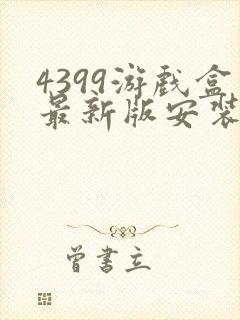 4399游戏盒
最新版安装
曾书立